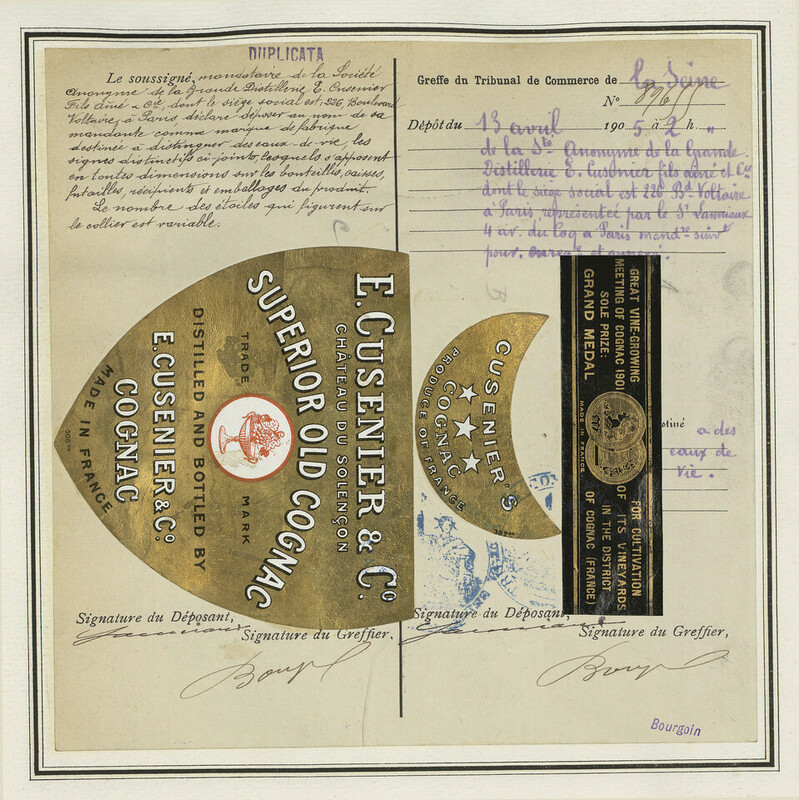 DUPLICATA
Le soussigné, mandataire de la Société
Anonyme de la Grande Distillerie E. Cusenier
Fils aîné & Cie, dont le siège social est, 226, Boulevard
Voltaire, à Paris, déclare déposer au nom de sa
mandante comme marque de fabrique
destinée à distinguer des eaux-de-vie, les
signes distinctifs ci-joints, lesquels s'apposent
en toutes dimensions sur les bouteilles, caisses,
futailles, récipients et emballages du produit.
Le nombre des étoiles qui figurent sur
le collier est variable.
Greffe du Tribunal de Commerce de la Seine
No
Dépôt du 13 avril 1905 à 2 h. "
de la Sté Anonyme de la Grande
Distillerie E. Cusenier fils aîné et Cie
dont le siège social est 226 Bd Voltaire
à Paris représentée par le Sr
4 av. du Coq à Paris mandre suivt
pouv. enregé et annexé.
E. CUSENIER & Co
CHÂTEAU DU SOLENÇON
SUPERIOR OLD COGNAC
TRADE MARK
DISTILLED AND BOTTLED BY
E. CUSENIER & Co.
COGNAC
MADE IN FRANCE
CUSENIER'S
COGNAC
PRODUCE OF FRANCE
GREAT VINE-GROWING
MEETING OF COGNAC 1901
SOLE PRIZE:
GRAND MEDAL
MADE IN FRANCE
FOR CULTIVATION
OF ITS VINEYARDS
IN THE DISTRICT
OF COGNAC (FRANCE)
stiné a des
eaux de
vie.
Signature du Déposant,
Signature du Greffier,
Signature du Déposant,
Signature du Greffier,
Bourgoin